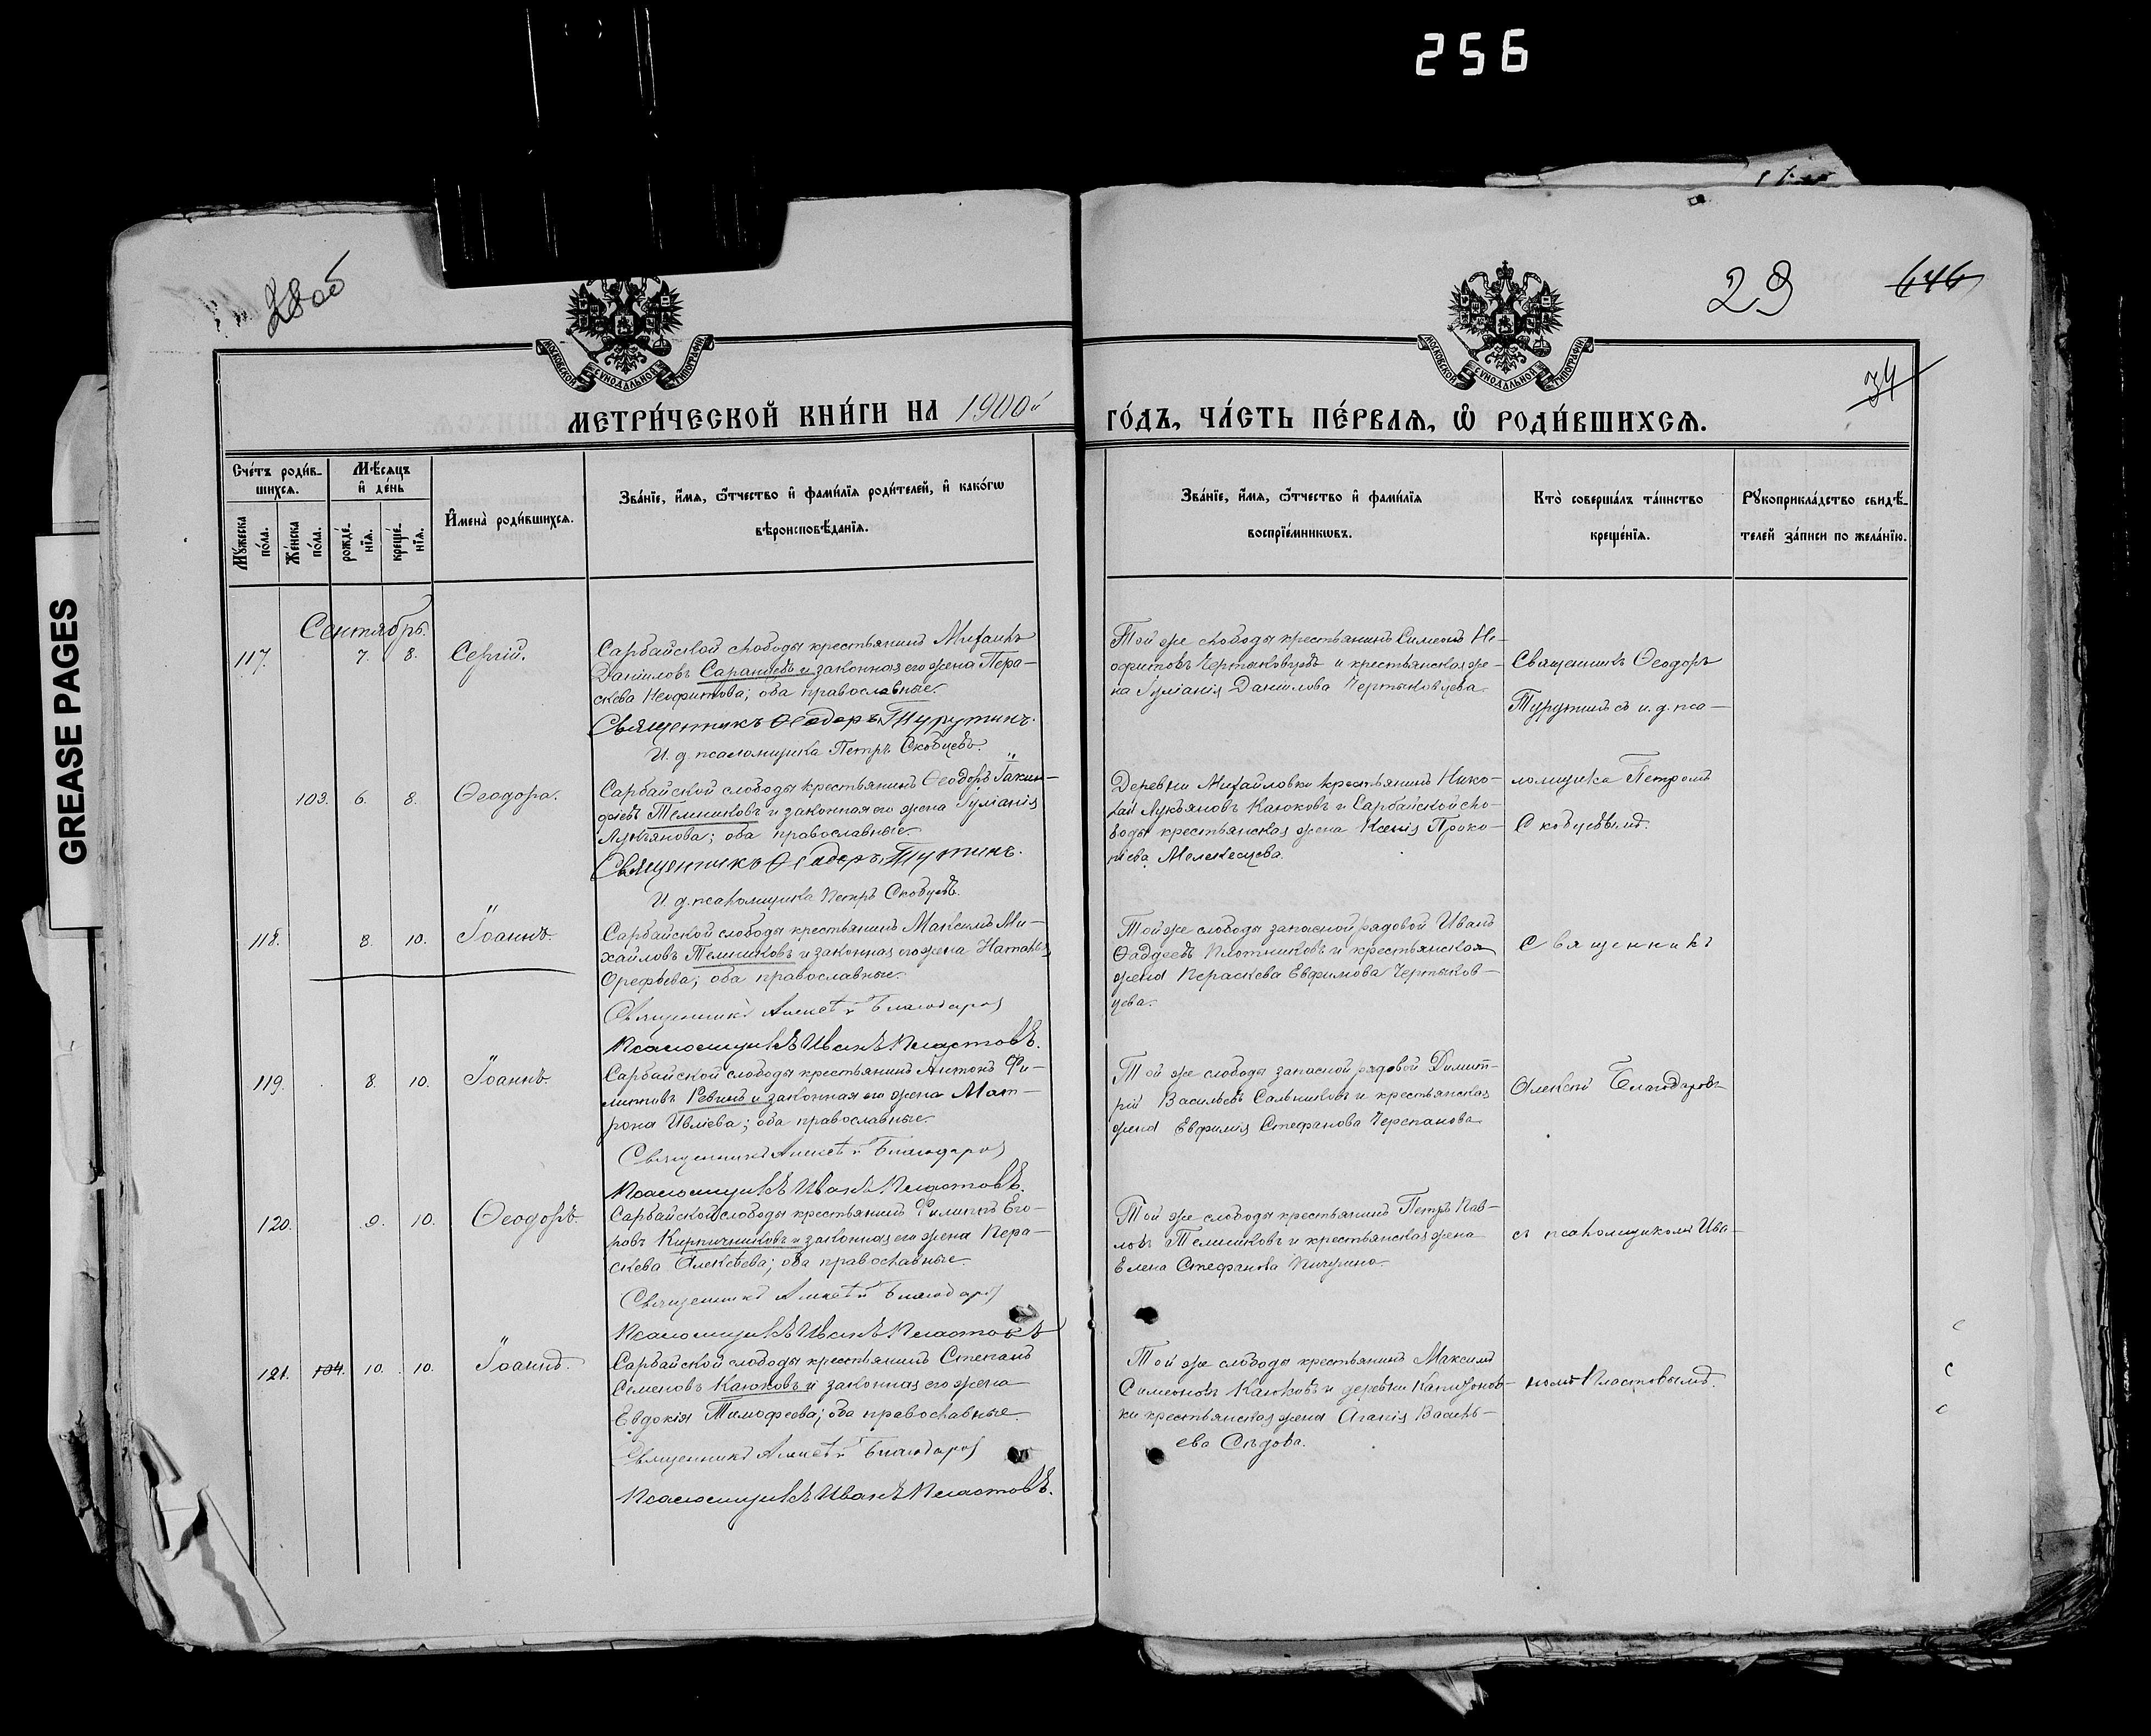 256
28 об
29
646
34
МОСКОВСКОЙ СѴНОДАЛЬНОЙ ТИПОГРАФІИ
МОСКОВСКОЙ СѴНОДАЛЬНОЙ ТИПОГРАФІИ
МЕТРИ́ЧЕСКОЙ КНИ́ГИ НА 1900й
ГО́ДЪ, ЧА́СТЬ ПЕ́РВАѦ, Ѽ РОДИ́ВШИХСѦ.
Сче́тъ роди́в-
шихсѧ.
Мꙋжеска по́ла.
Же́нска по́ла.
Мѣ́сѧцъ
и҆ де́нь
рожде́-
нїѧ.
креще́-
нїѧ.
И҆мена̀ роди́вшихсѧ.
Зва́нїе, и҆́мѧ, ѻ҆́тчество и҆ фами́лїѧ роди́телей, и҆ како́гѡ
вѣроисповѣ́данїѧ.
Зва́нїе, и҆́мѧ, ѻ҆́тчество и҆ фами́лїѧ
воспрїе́мникѡвъ.
Кто̀ соверша́лъ та́инство
креще́нїѧ.
Рꙋкоприкла́дство свидѣ́-
телей за́писи по жела́нїю.
GREASE PAGES
Сентябрь.
117. 7. 8. Сергій.
Сарбайской слободы крестьянинъ Михаилъ
Даниловъ Саранцевъ и законная его жена Пера-
скева Неофитова; оба православные.
Священникъ Ѳеодоръ Турутинъ.
И. д. псаломщика Петръ Скобцевъ.
Той же слободы крестьянинъ Симеонъ Не-
офитовъ Чертыковцевъ и крестьянская же-
на Іуліанія Данилова Чертыковцева.
Священникъ Ѳеодоръ
Турутинъ съ и. д. пса-
103. 6. 8. Ѳеодора.
Сарбайской слободы крестьянинъ Ѳеодоръ Іакин-
ѳіевъ Телешковъ и законная его жена Іуліанія
Лукьянова; оба православные.
Священникъ Ѳеодоръ Турутинъ.
И. д. псаломщика Петръ Скобцевъ.
Деревни Михайловки крестьянинъ Нико-
лай Лукьяновъ Каюковъ и Сарбайской сло-
боды крестьянская жена Ксенія Проко-
піева Мелекесцева.
ломщика Петромъ
Скобцевымъ.
118. 8. 10. Іоаннъ.
Сарбайской слободы крестьянинъ Максимъ Ми-
хайловъ Телешковъ и законная его жена Наталья
Орефьева; оба православные.
Священникъ Алексѣй Благодаровъ
Псаломщикъ Иванъ Пластовъ.
Той же слободы запасной рядовой Иванъ
Ѳаддеевъ Плотниковъ и крестьянская
жена Параскева Евфимова Чертыков-
цева.
Священникъ
119. 8. 10. Іоаннъ.
Сарбайской слободы крестьянинъ Антонъ Фи-
липповъ Ревинъ и законная его жена Мат-
рона Ивліева; оба православные.
Священникъ Алексѣй Благодаровъ
Псаломщикъ Иванъ Пластовъ.
Той же слободы запасной рядовой Димит-
рій Васильевъ Сальниковъ и крестьянская
жена Евфимія Стефанова Черепанова.
Алексѣй Благодаровъ
120. 9. 10. Ѳеодоръ.
Сарбайской слободы крестьянинъ Филиппъ Его-
ровъ Кирпичниковъ и законная его жена Пера-
скева Алексѣева; оба православные.
Священникъ Алексѣй Благодаровъ
Псаломщикъ Иванъ Пластовъ
Той же слободы крестьянинъ Петръ Пав-
ловъ Телешковъ и крестьянская жена
Елена Стефанова Пичугина.
съ псаломщикомъ Ива-
121. 104. 10. 10. Іоаннъ.
Сарбайской слободы крестьянинъ Степанъ
Семеновъ Каюковъ и законная его жена
Евдокія Тимофеева; оба православные.
Священникъ Алексѣй Благодаровъ
Псаломщикъ Иванъ Пластовъ.
Той же слободы крестьянинъ Максимъ
Симеоновъ Каюковъ и деревни Капитонов-
ки крестьянская жена Агаѳія Василь-
ева Сѣдова.
номъ Пластовымъ.